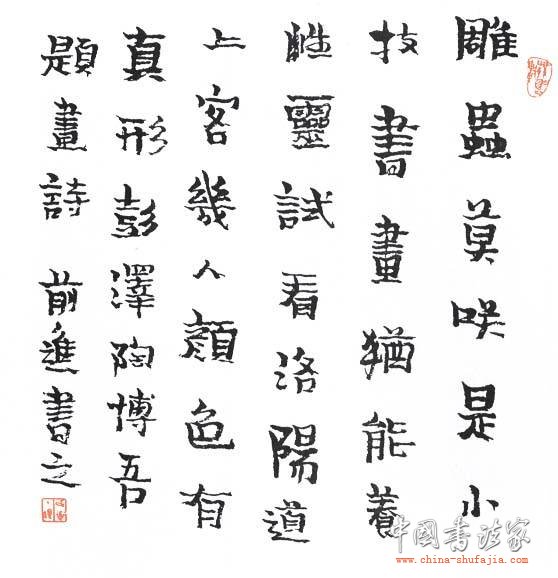 雕蟲莫咲是小
技書畫猶能養
性靈試看洛陽道
上客幾人顔色有
真形彭澤陶博吾
題畫詩 前進書之
中国书法家
www.china-shufajia.com